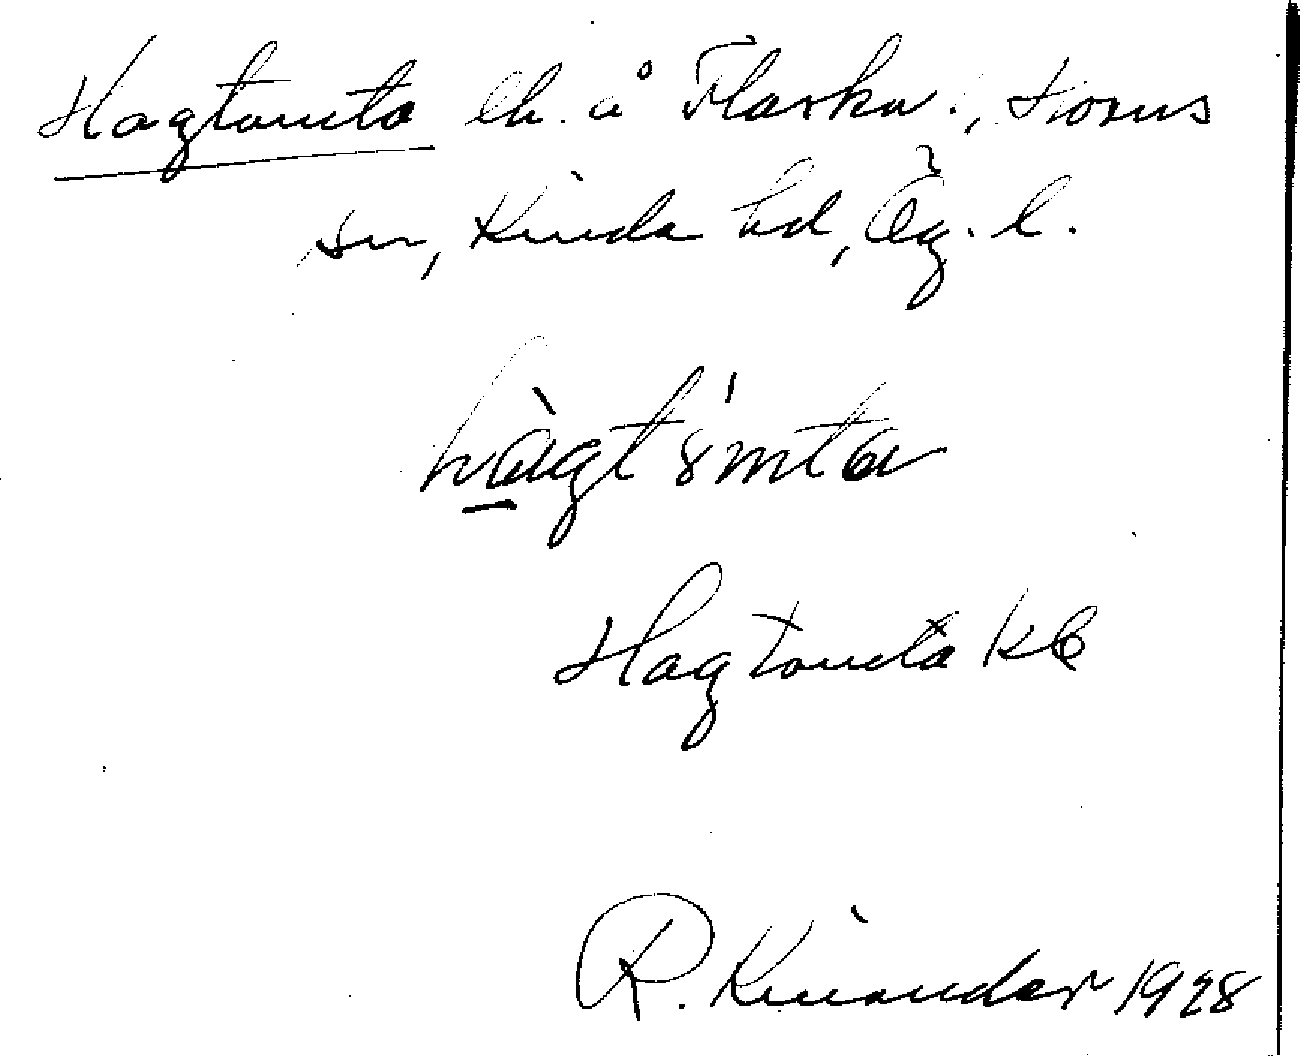 Hagtomta lh. å Flaska., Horns
sn, Kinda hd, Ög. l.
hàgt8mta
Hagtomta kb
R. Kinander 1928